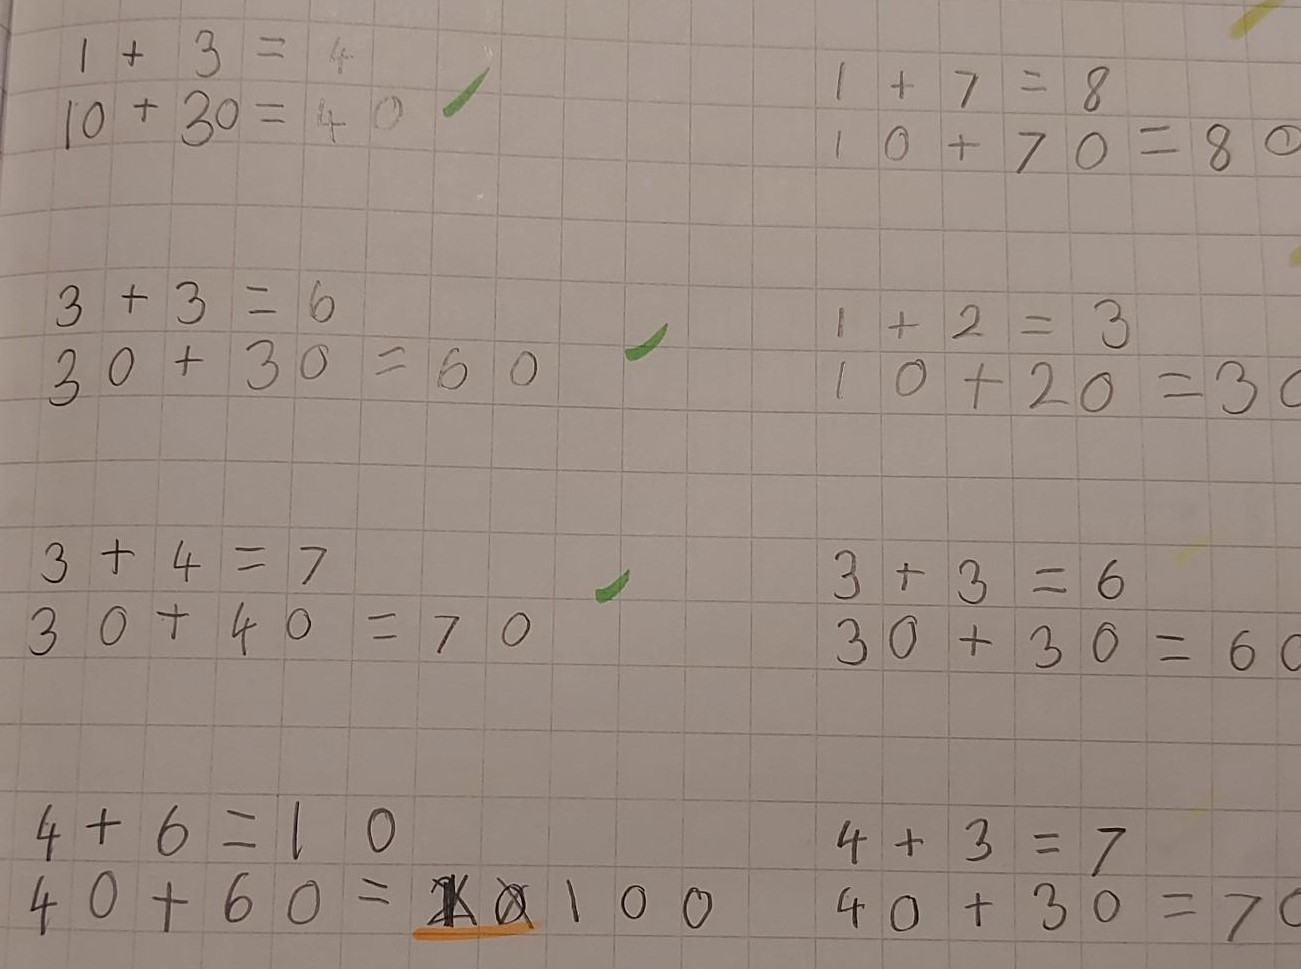 1 + 3 = 4
10 + 30 = 40
3 + 3 = 6
30 + 30 = 60
3 + 4 = 7
30 + 40 = 70
4 + 6 = 10
40 + 60 = 100
1 + 7 = 8
10 + 70 = 80
1 + 2 = 3
10 + 20 = 30
3 + 3 = 6
30 + 30 = 60
4 + 3 = 7
40 + 30 = 70